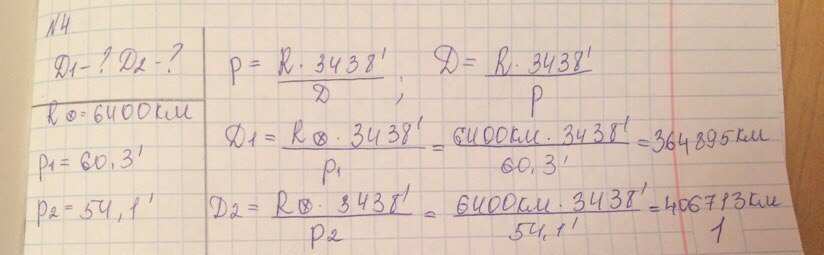 №4.
D1-? D2-?
R⊕=6400км
p1=60,3'
p2=54,1'
p = R·3438' / D ; D = R·3438' / p
D1 = R⊗·3438' / p1 = 6400км·3438' / 60,3' = 364895км
D2 = R⊗·3438' / p2 = 6400км·3438' / 54,1' = 406713км
1